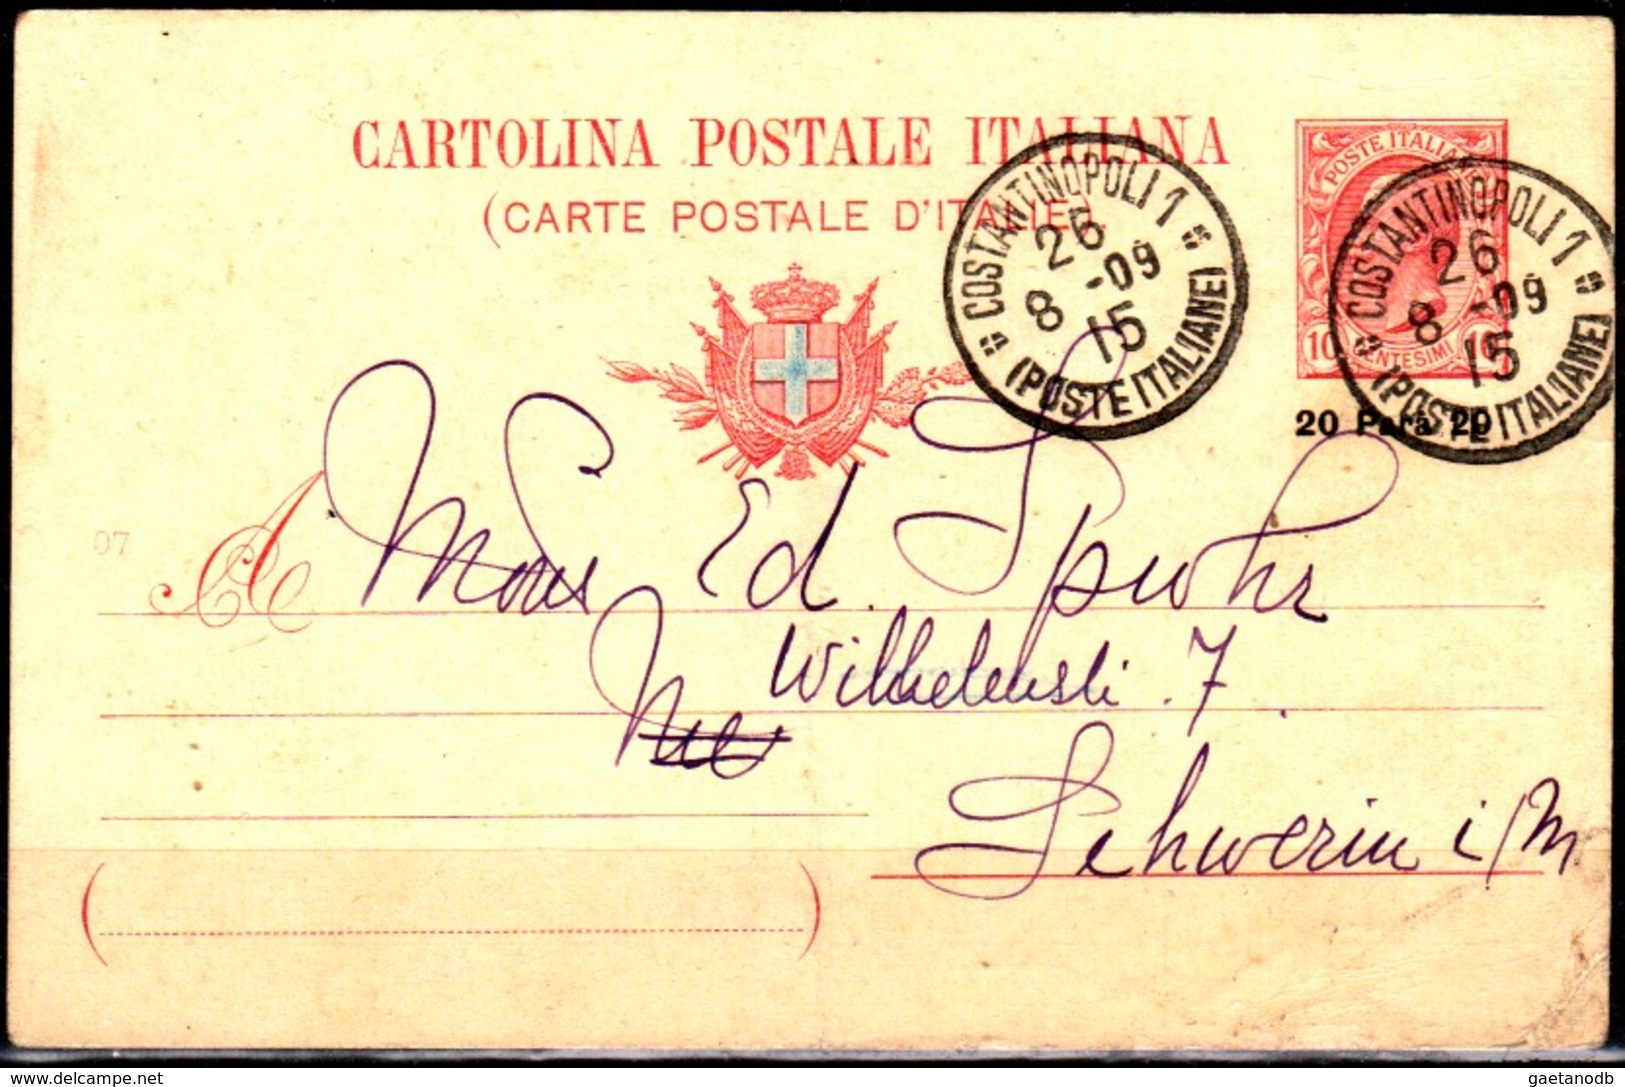 CARTOLINA POSTALE ITALIANA
(CARTE POSTALE D'ITALIE)
POSTE ITALIANE
10 CENTESIMI 10
20 Para 20
COSTANTINOPOLI 1
26
8 -09
15
(POSTE ITALIANE)
COSTANTINOPOLI 1
26
8 -09
15
(POSTE ITALIANE)
07
A Mons Ed. Spuhr
7
Schwerin i/M
delcampe.net
gaetanodb